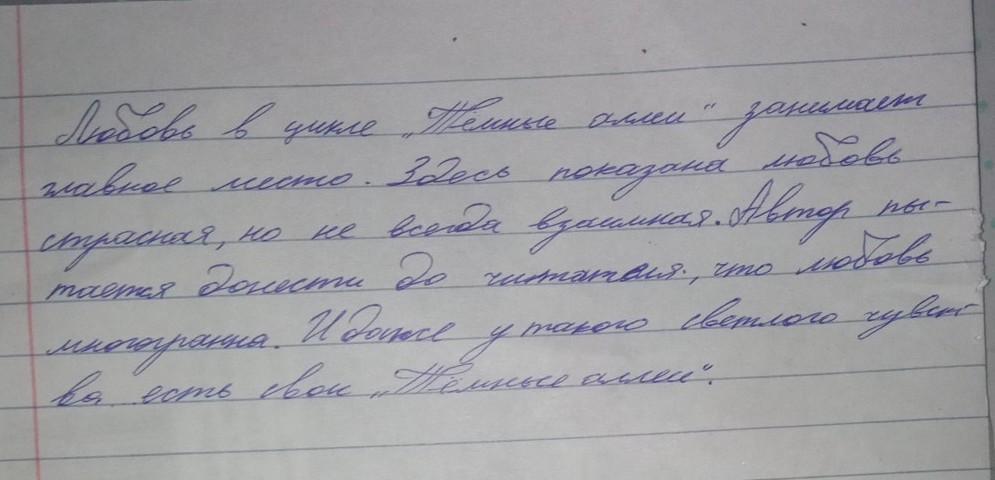 Любовь в цикле "Темные аллеи" занимает
главное место. Здесь показана любовь
страсная, но не всегда взаимная. Автор пы-
тается донести до читателя, что любовь
многогранна. И даже у такого светлого чувст-
ва есть свои "Темные аллеи".